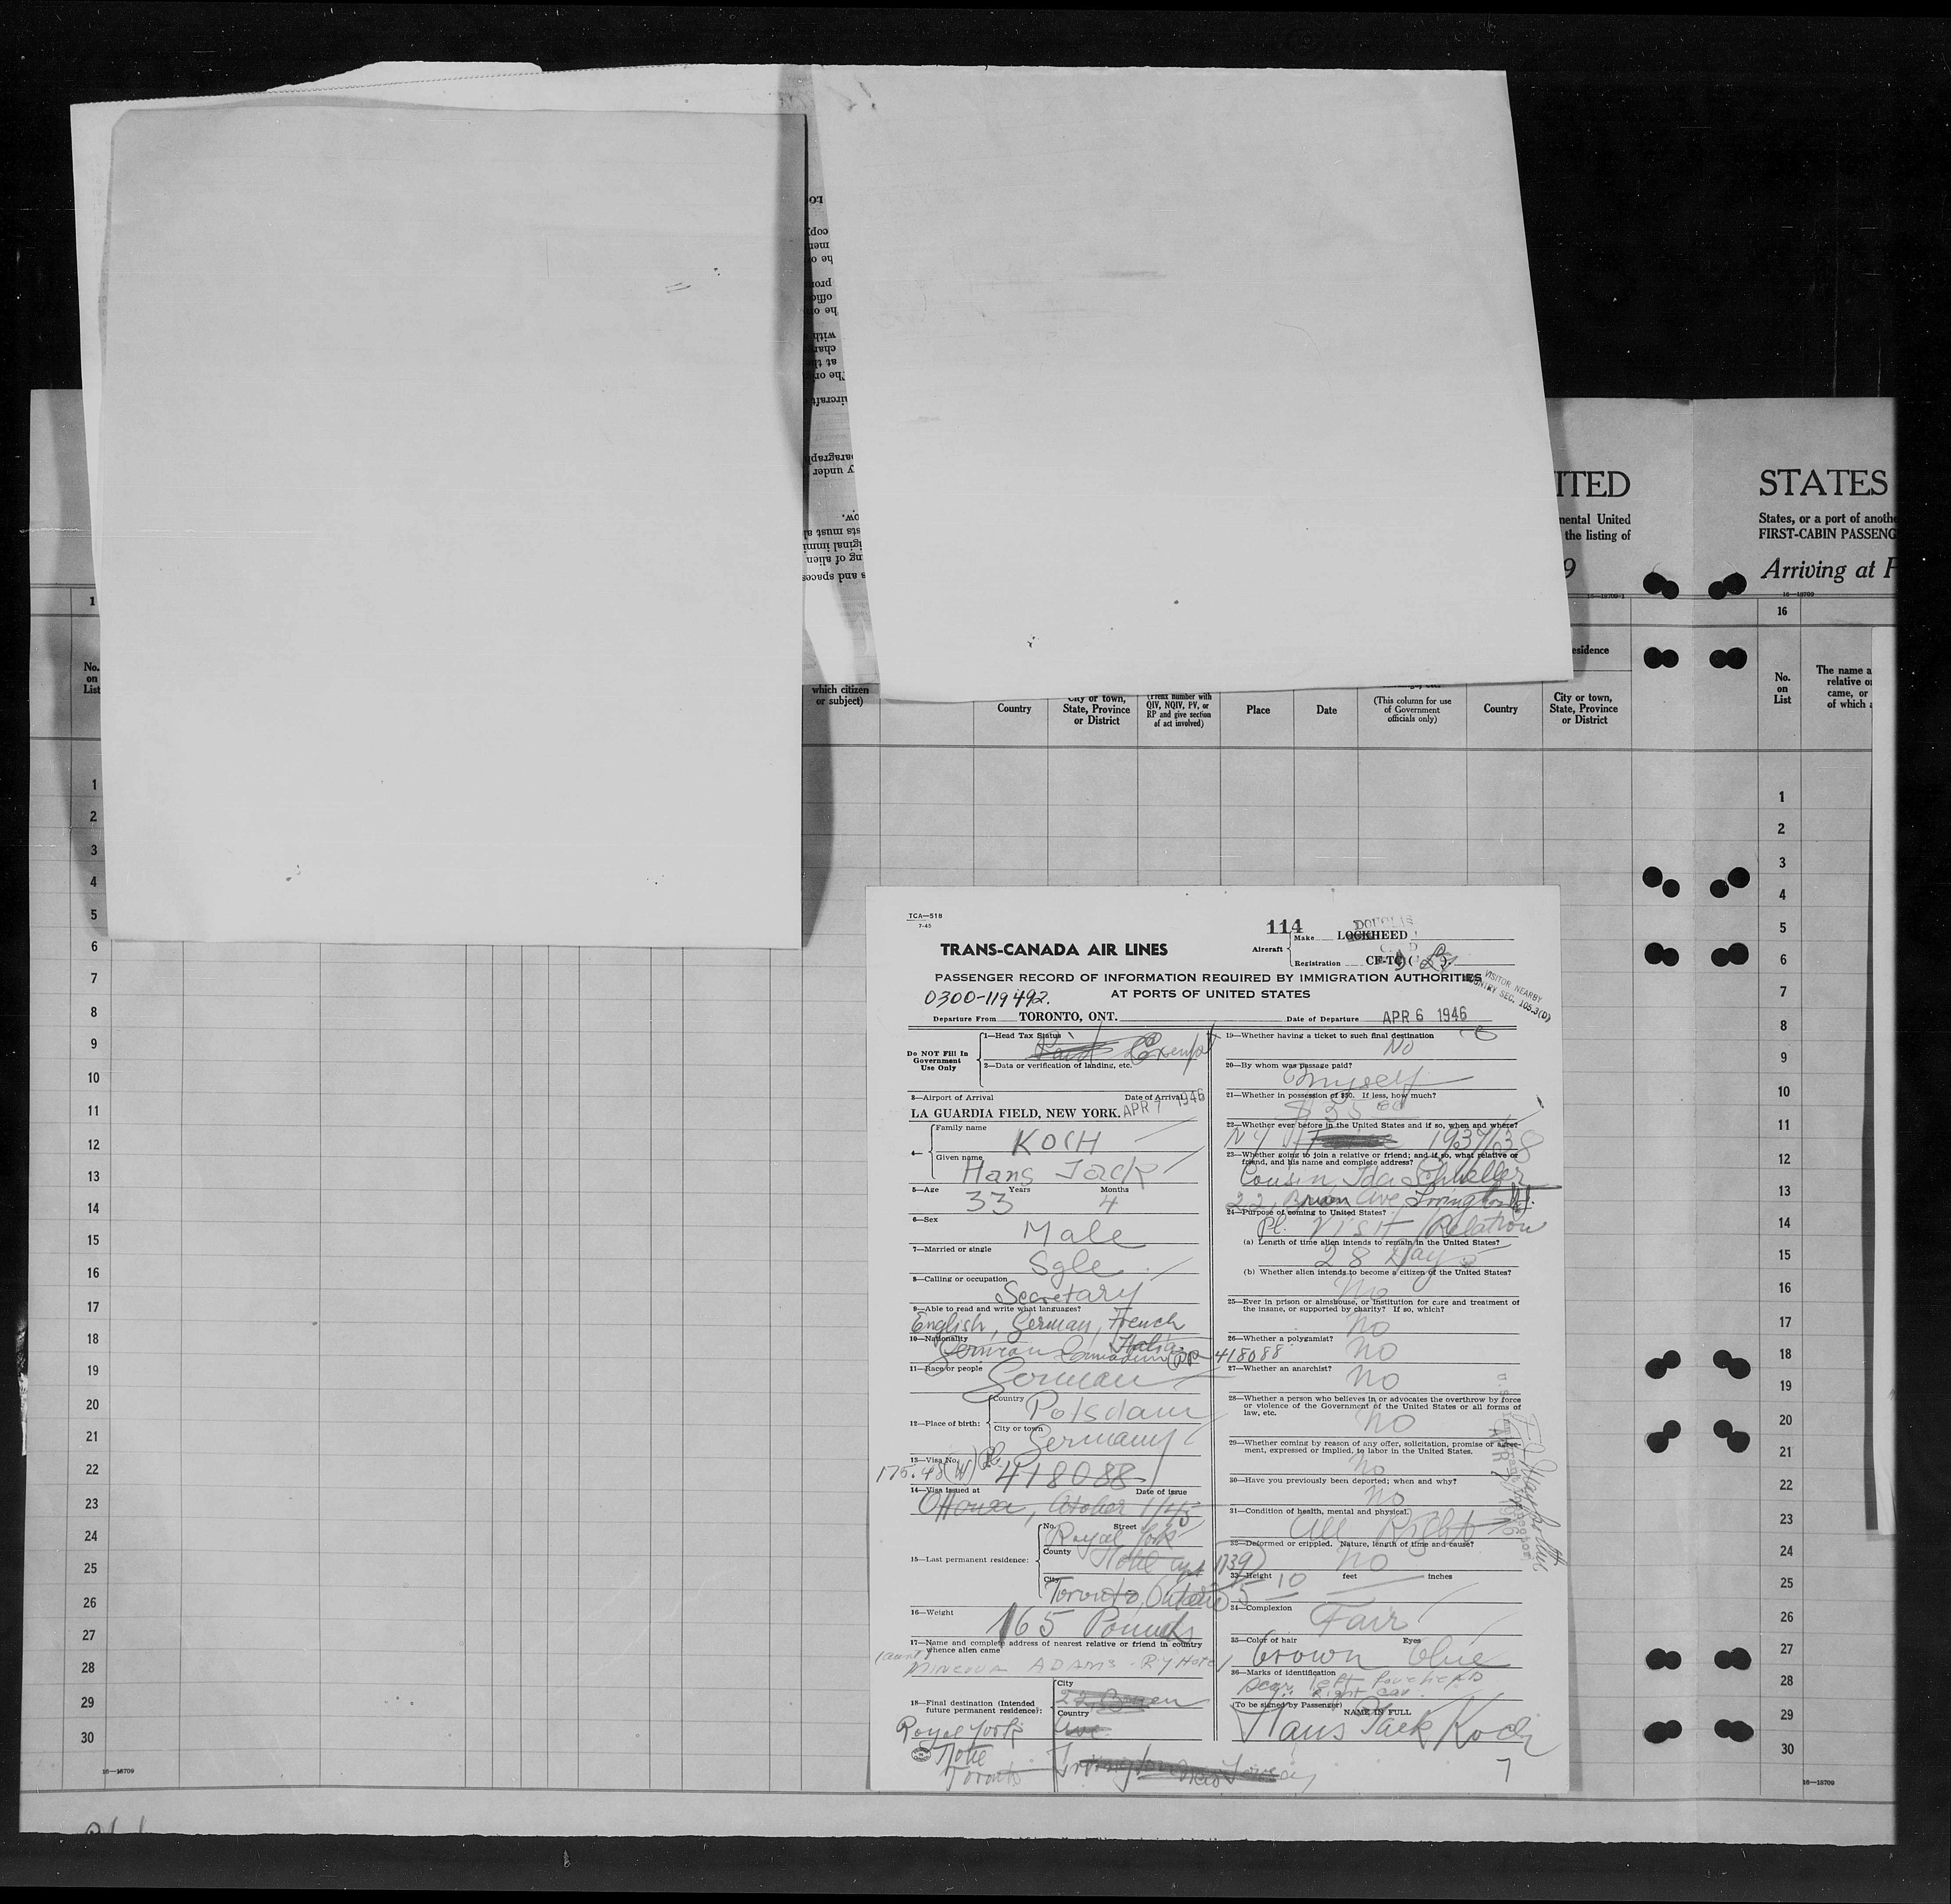 LO
copy
men
he o
prom
offic
he o
with
charg
at the
The or
ircraft
paragraph
y under
ow.
sts must
iginal immi
ng of alien
s and spaces
ITED
STATES
mental United
the listing of
States, or a port of anothe
FIRST-CABIN PASSENG
9
Arriving at P
16—18709-1
16—18709
1
16
No.
on
List
which citizen
or subject)
Country
City or town,
State, Province
or District
(Prefix number with
QIV, NQIV, PV, or
RP and give section
of act involved)
Place
Date
(This column for use
of Government
officials only)
Country
esidence
City or town,
State, Province
or District
No.
on
List
The name a
relative o
came, or
of which a
1
2
3
4
5
6
7
8
9
10
11
12
13
14
15
16
17
18
19
20
21
22
23
24
25
26
27
28
29
30
16—18709
TCA—518
7-45
TRANS-CANADA AIR LINES
114
Aircraft
Make
DOUGLAS
LOCKHEED
Registration
CF-TC
PASSENGER RECORD OF INFORMATION REQUIRED BY IMMIGRATION AUTHORITIES
AT PORTS OF UNITED STATES
0300-119492.
VISITOR NEARBY
COUNTRY SEC. 105.3(D)
Departure From TORONTO, ONT.
Date of Departure APR 6 1946
Do NOT Fill In
Government
Use Only
1—Head Tax Status
Paid Exempt
2—Data or verification of landing, etc.
3—Airport of Arrival
Date of Arrival
LA GUARDIA FIELD, NEW YORK. APR 7 1946
4—
Family name
KOCH
Given name
Hans Jack
5—Age
33 Years 4 Months
6—Sex
Male
7—Married or single
Sgle
8—Calling or occupation
Secretary
9—Able to read and write what languages?
English, German, French
Italia
10—Nationality
German Canadian PP 418088
11—Race or people
German
12—Place of birth:
Country
Potsdam
City or town
Germany
13—Visa No.
175.48(W) Pl. 418088
14—Visa issued at
Date of issue
Ottawa, October 1/45
15—Last permanent residence:
No. Street
Royal York
County
Hotel apt 1739
City
Toronto, Ontario
16—Weight
165 Pounds
17—Name and complete address of nearest relative or friend in country
whence alien came
(aunt)
MINERVA ADAMS - R.Y Hotel
18—Final destination (Intended
future permanent residence):
City
22, Bruen
Country
Ave.
Irvington New Jersey
Royal York
Hotel
Toronto
19—Whether having a ticket to such final destination
No
20—By whom was passage paid?
myself
21—Whether in possession of $50. If less, how much?
$ 35 00
22—Whether ever before in the United States and if so, when and where?
NY 1937/38
23—Whether going to join a relative or friend; and if so, what relative or
friend, and his name and complete address?
Cousin, Ida Schueller
22, Bruen Ave, Irvington NJ.
24—Purpose of coming to United States?
Pl. Visit Relation
(a) Length of time alien intends to remain in the United States?
28 Days
(b) Whether alien intends to become a citizen of the United States?
No
25—Ever in prison or almshouse, or institution for care and treatment of
the insane, or supported by charity? If so, which?
No
26—Whether a polygamist?
No
27—Whether an anarchist?
No
28—Whether a person who believes in or advocates the overthrow by force
or violence of the Government of the United States or all forms of
law, etc.
No
29—Whether coming by reason of any offer, solicitation, promise or agree-
ment, expressed or implied, to labor in the United States.
No
30—Have you previously been deported; when and why?
No
31—Condition of health, mental and physical.
All Right
32—Deformed or crippled. Nature, length of time and cause?
No
33—Height
5 feet 10 inches
34—Complexion
Fair
35—Color of hair
Eyes
brown blue
36—Marks of identification
Scar left forehead
" Right ear.
(To be signed by Passenger)
NAME IN FULL
Hans Jack Koch
7
1
2
3
4
5
6
7
8
9
10
11
12
13
14
15
16
17
18
19
20
21
22
23
24
25
26
27
28
29
30
16—18709